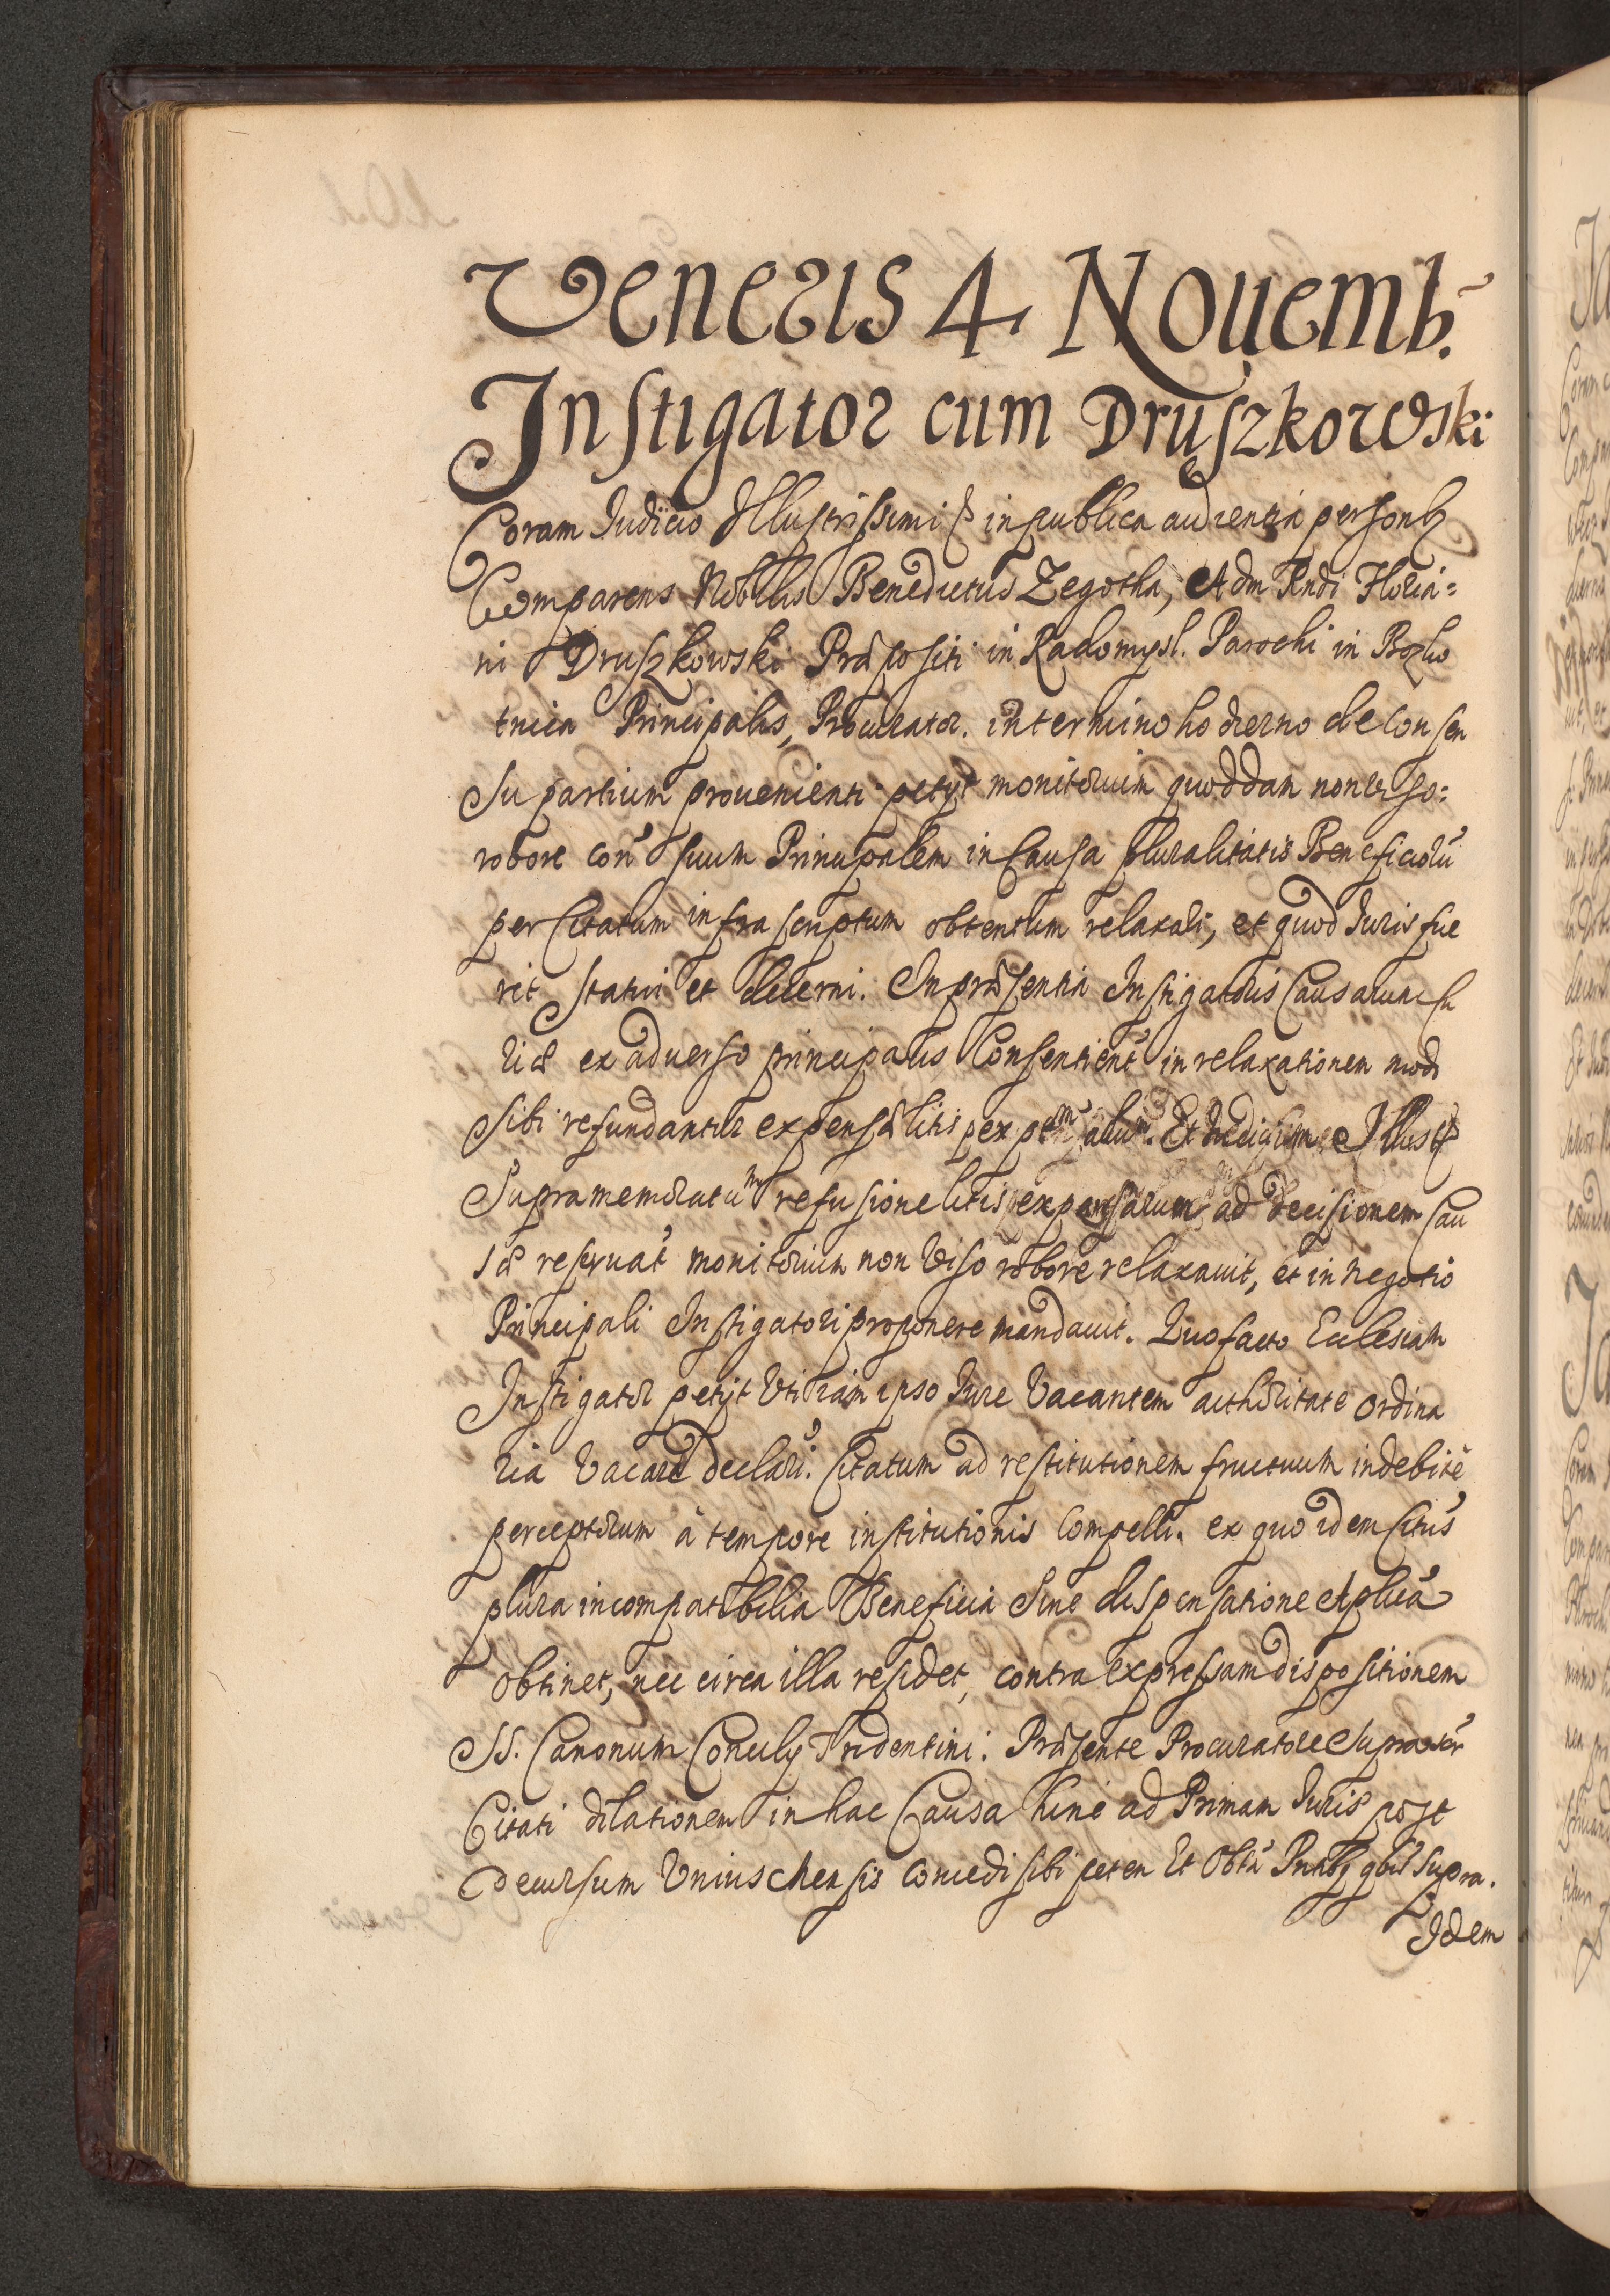 Veneris 4 Nouemb.
Instigator cum Druszkowski
Coram Iudicio Illustrissimi in publica audientia personlr
Comparens Nobilis Benedictus Zegotha, Adm Rndi Floria=
ni Druszkowski Præpositi in Radomysl. Parochi in
tnica Principalis, Procurator. in termino hodierno de Consen
su partium prouenienti petyt monitorium quoddam non viso=
robore con suum Principalem in Causa pluralitatis Beneficiorũ
per Citatum infra scriptum obtentum relaxari, et quod Iuris fue
rit statui et decerni. In præsentia Instigatoris Causarum Cu
riæ ex aduerso principalis Consentient in relaxationem modo
sibi refundantur expensæ litis per ptem aliam. Et Iudicium Illus
Supramemoratum refusione litis expensarum ad decisionem Cau
sæ reseruat monitorium non viso robore relaxauit, et in negotio
Principali Instigatori proponere mandauit. Quo facto Ecclesiam
Instigator petyt Vtiram ipso Iure Vacantem authoritate ordina
ria Vacare declari. Citatum ad restitutionem fructuum indebite
perceptorum à tempore institutionis Compelli. ex quo idem Citus
plura incompatibilia Beneficia sine dispensatione Aplica
obtinet, nec circa illa residet, contra expressam dispositionem
SS. Canonum Concilij Tridentini. Præsente Procuratore supra scr
Citati dilationem in hac Causa hinc ad Primam Iuris post
decursum Vnius Mensis concedi sibi peten Et Obtũ Pntibg qbus supra.
Idem